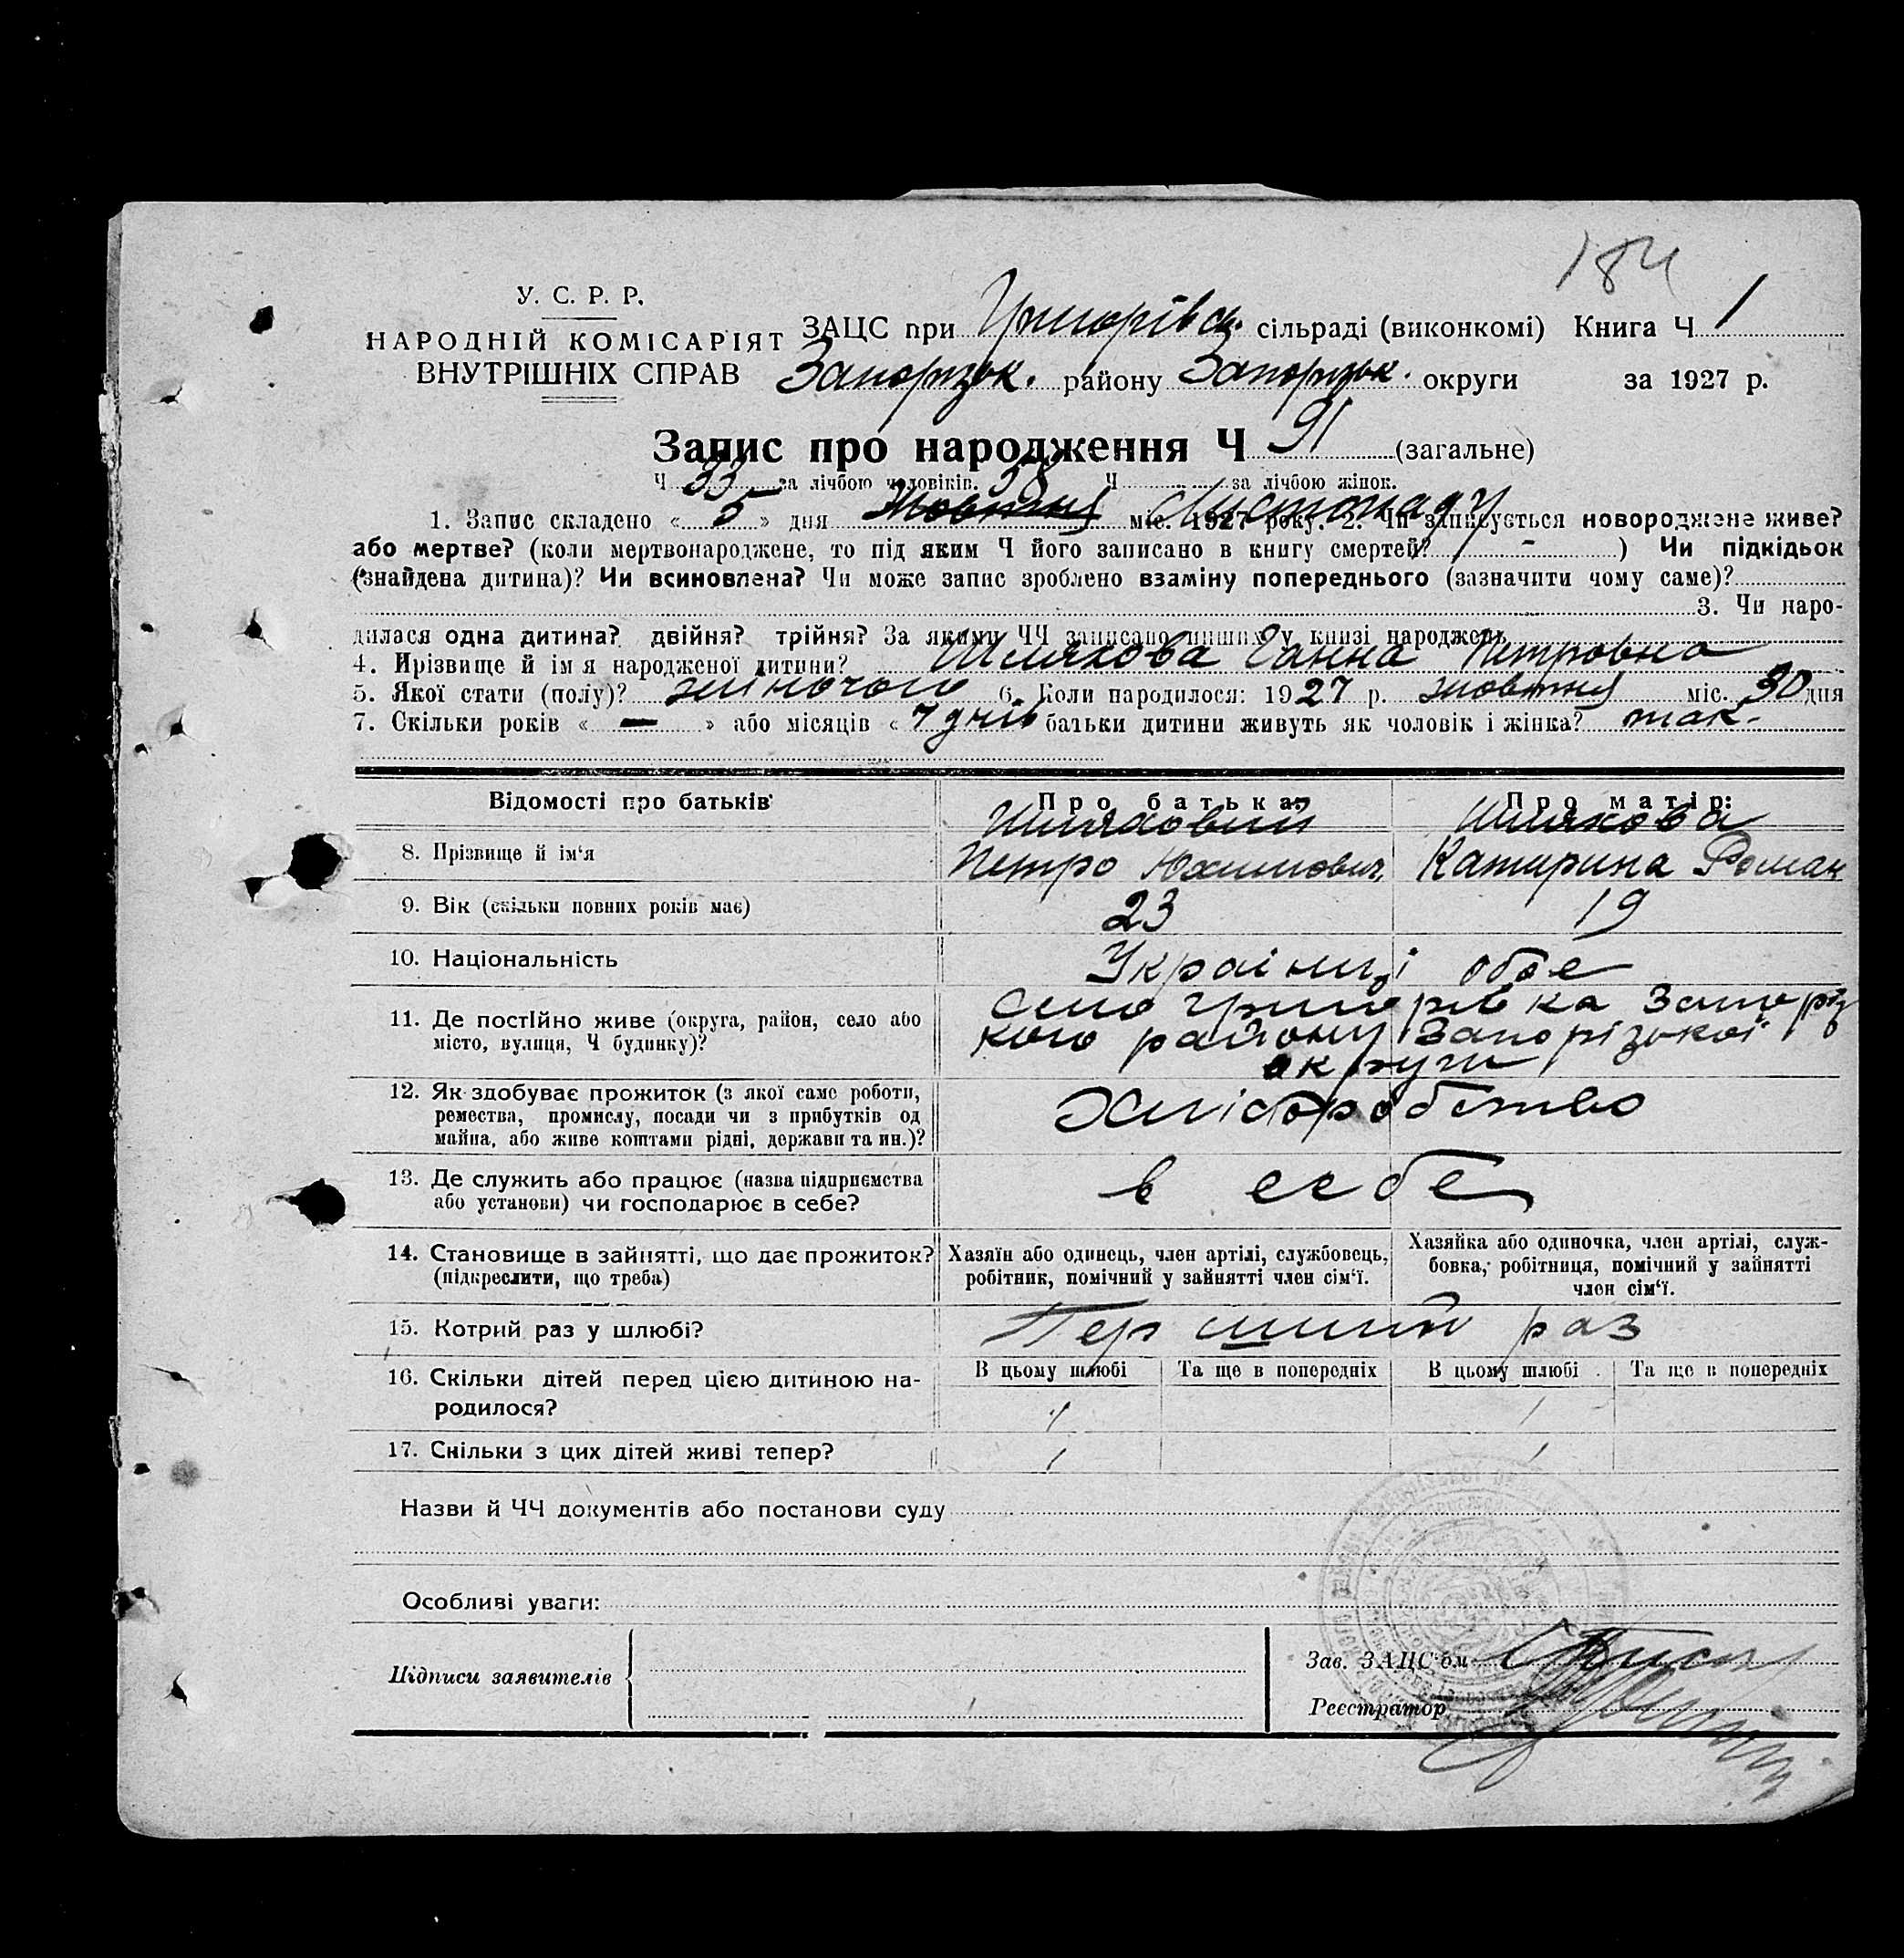 184
У. С. Р. Р.
НАРОДНІЙ КОМІСАРІЯТ
ВНУТРІШНІХ СПРАВ
ЗАЦС при Григорівськ. сільраді (виконкомі) Книга Ч 1
Запорізьк. району Запорізьк. округи за 1927 р.
Запис про народження Ч 91 (загальне)
Ч 33 за лічбою чоловіків. 58 Ч за лічбою жінок.
1. Запис складено « 5 » дня Жовтня Листопаду міс. 1927 року. 2. Чи записується новороджене живе?
або мертве? (коли мертвонароджене, то під яким Ч його записано в книгу смертей? / - ) Чи підкідьок
(знайдена дитина)? Чи всиновлена? Чи може запис зроблено взаміну попереднього (зазначити чому саме)?
3. Чи наро-
дилася одна дитина? двійня? трійня? За якими ЧЧ записано інших у книзі народжень
4. Прізвище й ім'я народженої дитини? Шляхова Ганна Петровна
5. Якої стати (полу)? жіночого 6. Коли народилося: 1927 р. жовтня міс. 30 дня
7. Скільки років « — » або місяців « 7 днів батьки дитини живуть як чоловік і жінка? так.
Відомості про батьків
Про батька:
Про матір:
8. Прізвище й ім'я
Шляховий
Петро Юхимович,
Шляхова
Катирина Роман
9. Вік (скільки повних років має)
23
19
10. Національність
Українці обоє
11. Де постійно живе (округа, район, село або
місто, вулиця, Ч будинку)?
Село Григорівка Запоріз
кого району Запорізької
округи
12. Як здобуває прожиток (з якої саме роботи,
ремества, промислу, посади чи з прибутків од
майна, або живе коштами рідні, держави та ин.)?
Хліборобство
13. Де служить або працює (назва підприємства
або установи) чи господарює в себе?
в себе
14. Становище в зайнятті, що дає прожиток?
(підкреслити, що треба)
Хазяїн або одинець, член артілі, службовець,
робітник, помічний у зайнятті член сім'ї.
Хазяйка або одиночка, член артілі, служ-
бовка, робітниця, помічний у зайнятті
член сім'ї.
15. Котрий раз у шлюбі?
Перший раз
16. Скільки дітей перед цією дитиною на-
родилося?
В цьому шлюбі
Та ще в попередніх
В цьому шлюбі
Та ще в попередніх
1
1
17. Скільки з цих дітей живі тепер?
1
1
Назви й ЧЧ документів або постанови суду
Особливі уваги:
Підписи заявителів
Зав. ЗАЦС'ом
Реєстратор